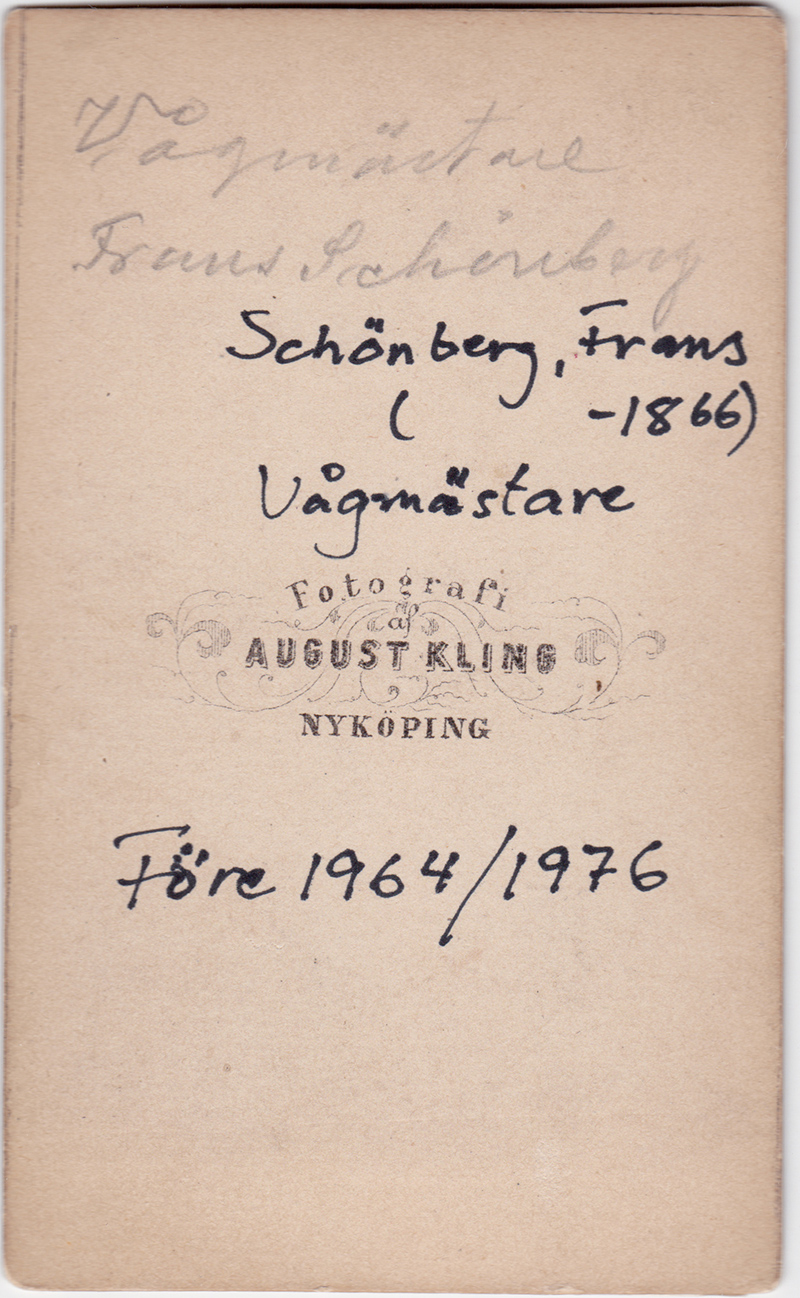 Vågmästare
Frans Schönberg
Schönberg, Frans
( -1866)
Vågmästare
Fotografi
af
AUGUST KLING
NYKÖPING
Före 1964/1976